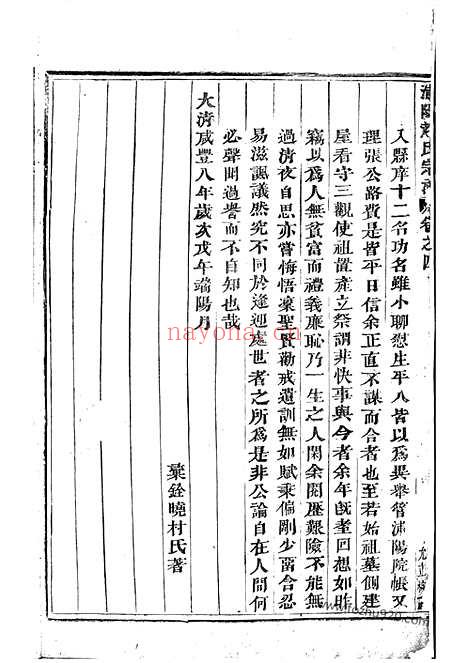 浦陽 氏宗譜 卷之四
入縣庠十二名功名雖小聊慰生平人皆以為異舉管浦陽院帳又
理張公路費是皆平日信余正直不謀而合者也至若始祖墓側建
屋看守三觀使祖置產立祭謂非快事與今者余年既耄回想如昨
竊以為人無貧富而禮義廉恥乃一生之人閑余閱歷艱險不能無
過清夜自思亦嘗悔悟稟聖賢勸戒遺訓無如賦乘偏剛少菑合忍
易滋諷議然究不同於逢迎處世者之所為是非公論自在人間何
必聲聞過譽而不自知也哉
大清咸豐八年歲次戊午年端陽月
銓曉村氏著
nayona.cn
www.fozhu920.com